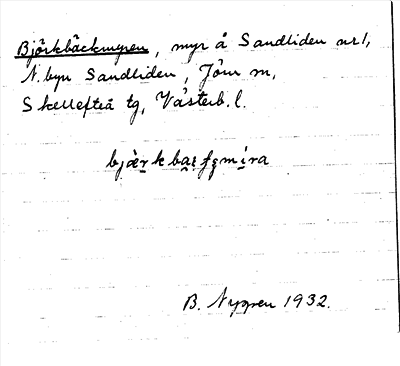 Björkbäckmyren, myr å Sandliden nr 1,
N. byn Sandliden, Jörn m,
Skellefteå tg, Västerb. l.
B. Nygren 1932.